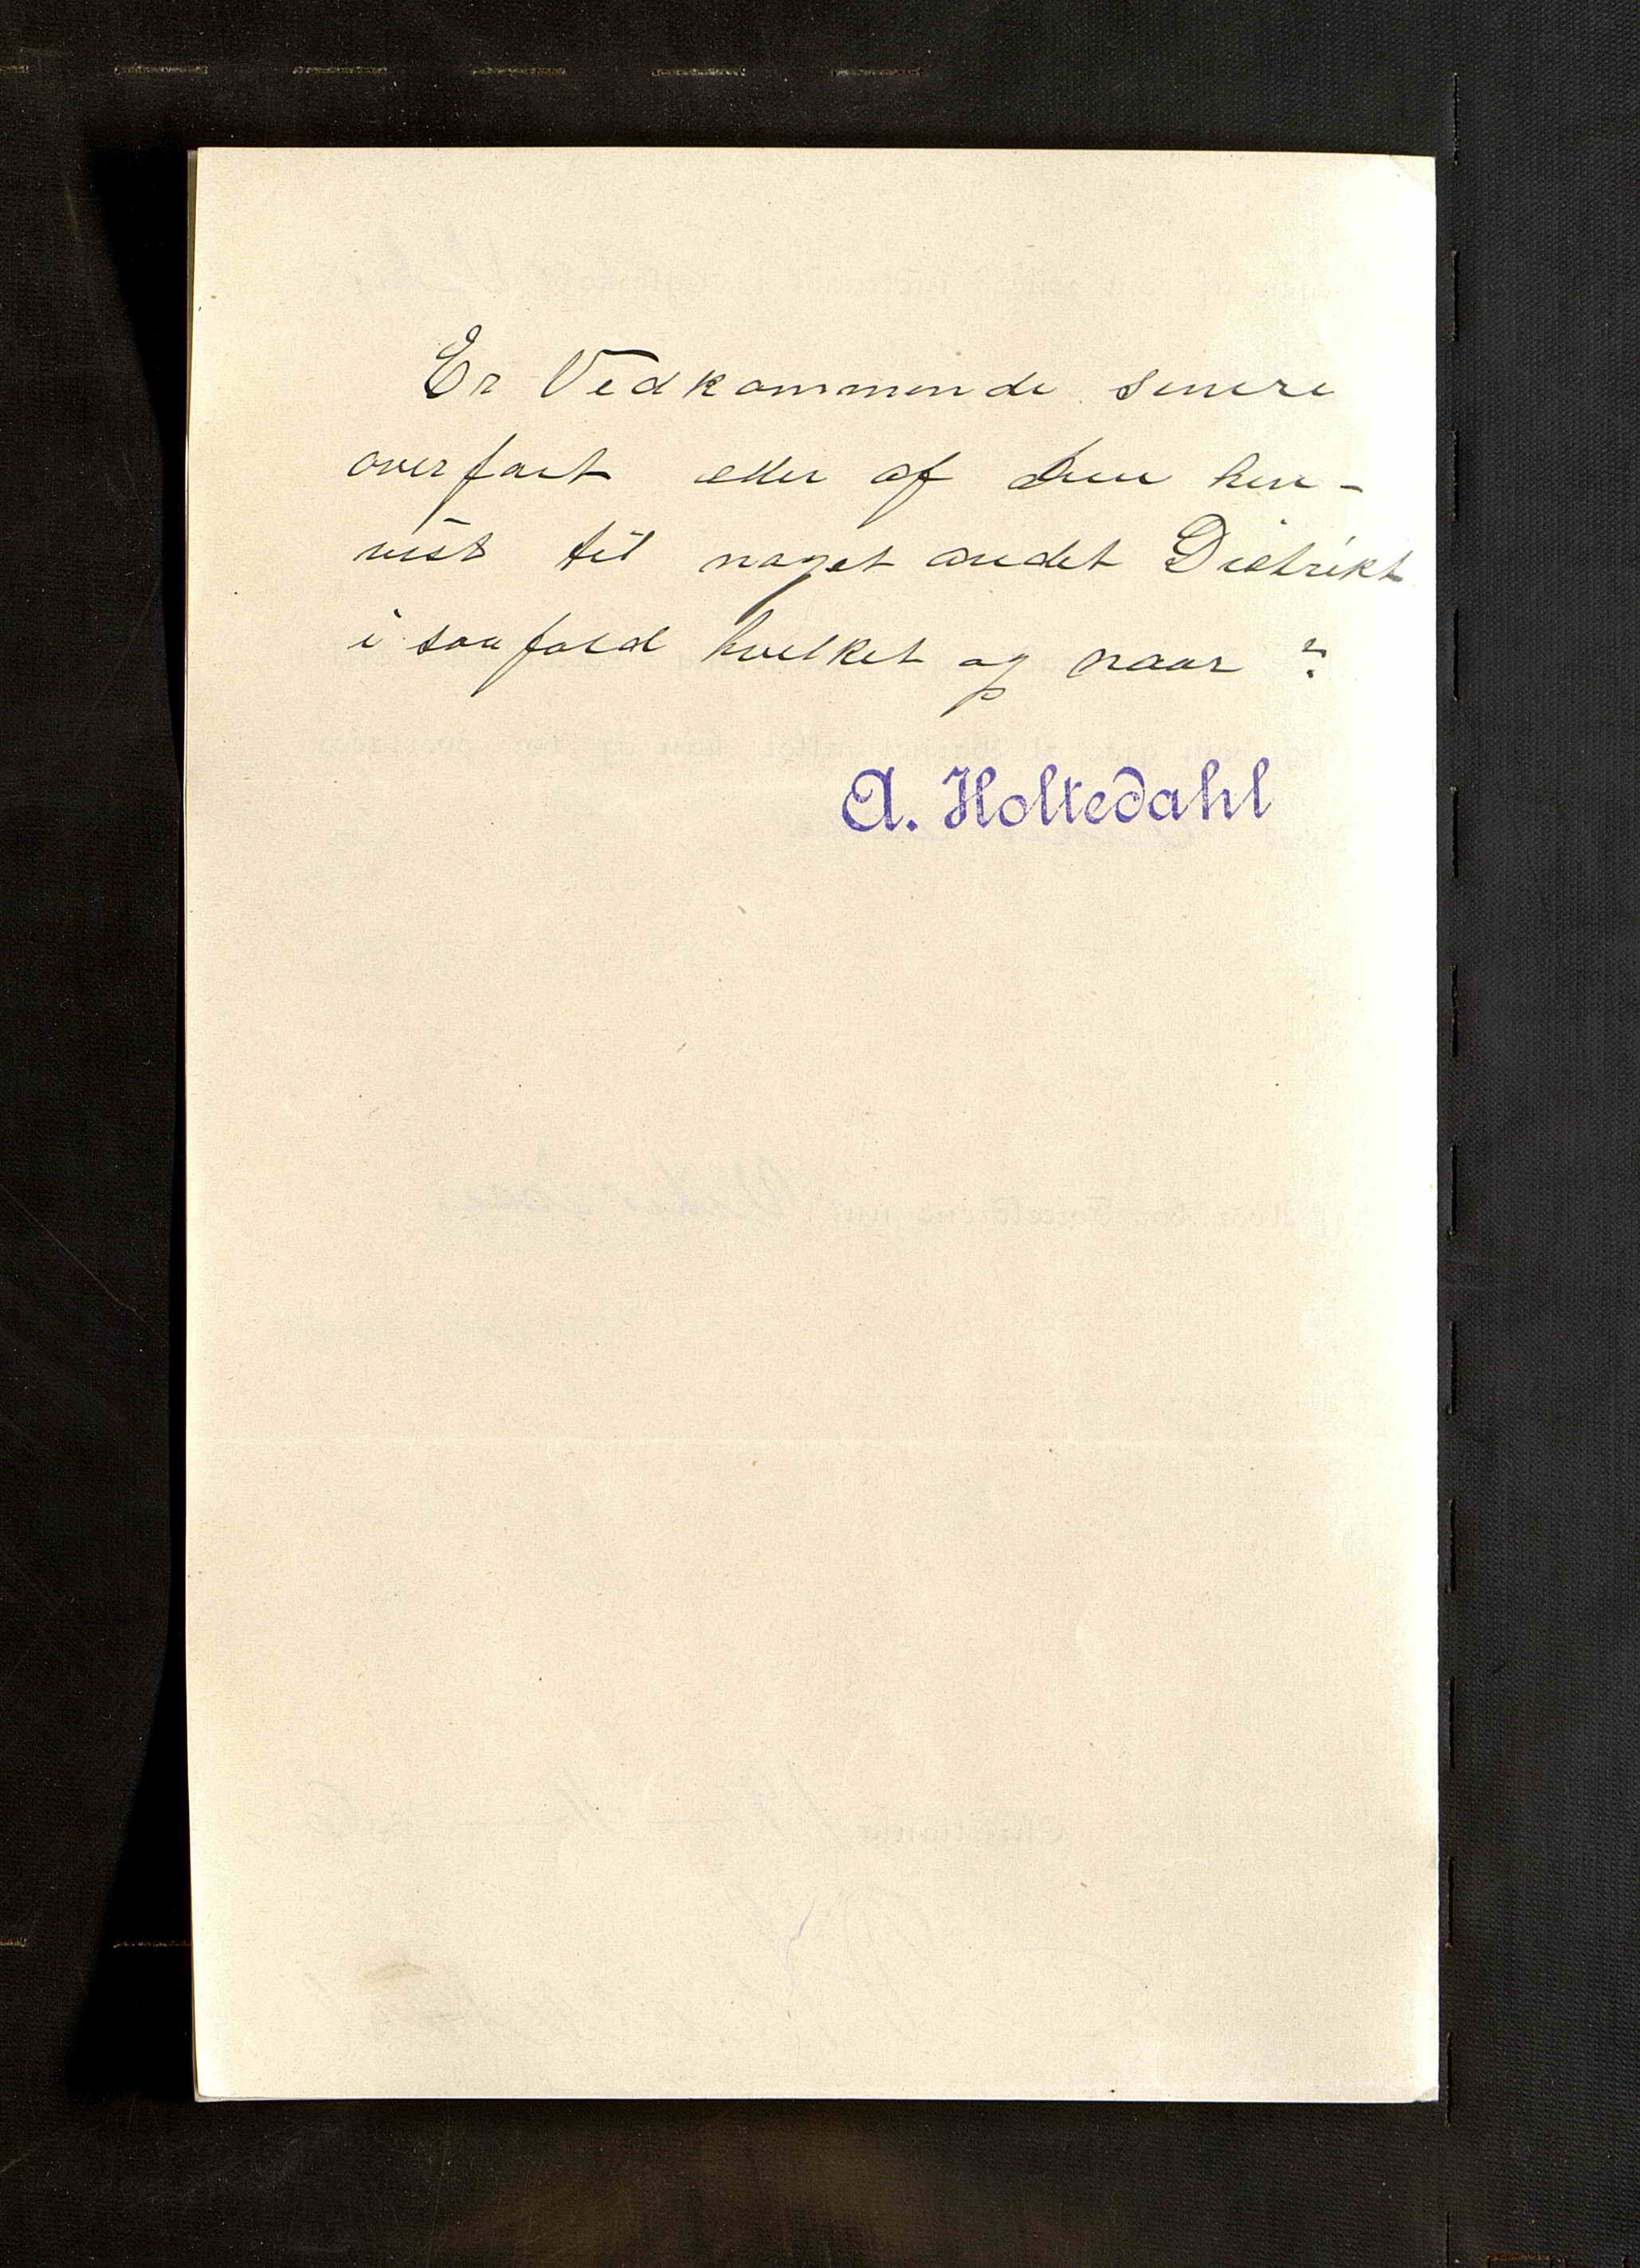 Er Vedkommende senere
overført eller af Dem hen-
vist til noget andet Distrikt
i saafald hvilket og naar?
A. Holtedahl